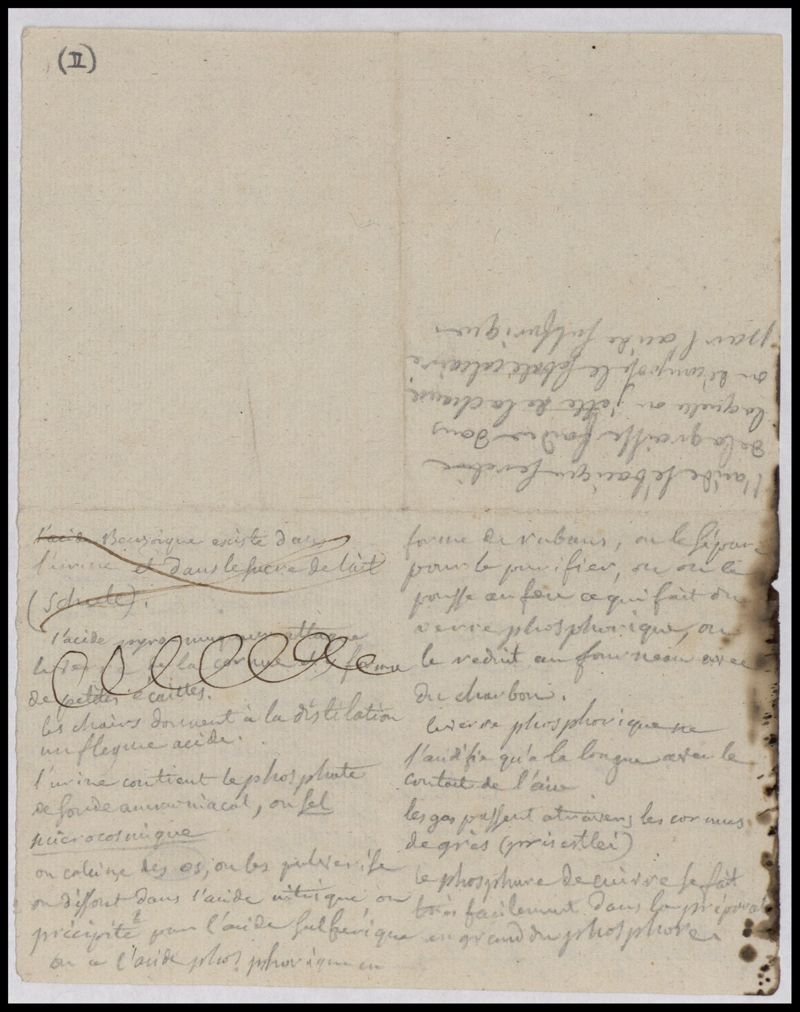 (II)
l'acide sébacique se retire
de la graisse fondue dans
laquelle on jette de la chaux,
on décompose le sébate calcaire
par l'acide sulfurique
l'acide Benzoique existe dans
l'urine et dans le sucre de lait
(Schele).
l'acide pyro
le de la cornue forme
de petites écailles.
les chairs donnent à la distilation
un flegme acide.
l'urine contient le phosphate
de soude ammoniacal, ou sel
microcosmique
on calcine des os, on les pulvérise
on dissout dans l'acide nitrique on
précipite par l'acide sulfurique
on a l'acide phosphorique en
forme de rubans, on le sépare
pour le purifier, ou on le
pousse au feu ce qui fait du
verre phosphorique, on
le reduit au fourneau avec
du charbon.
le verre phosphorique ne
s'acidifie qu'a la longue avec le
contact de l'air
les gas passent atravers les cornues
de grès (priestlei)
le phosphure de cuivre se fait
très facilement dans la préparat
en grand du phosphore